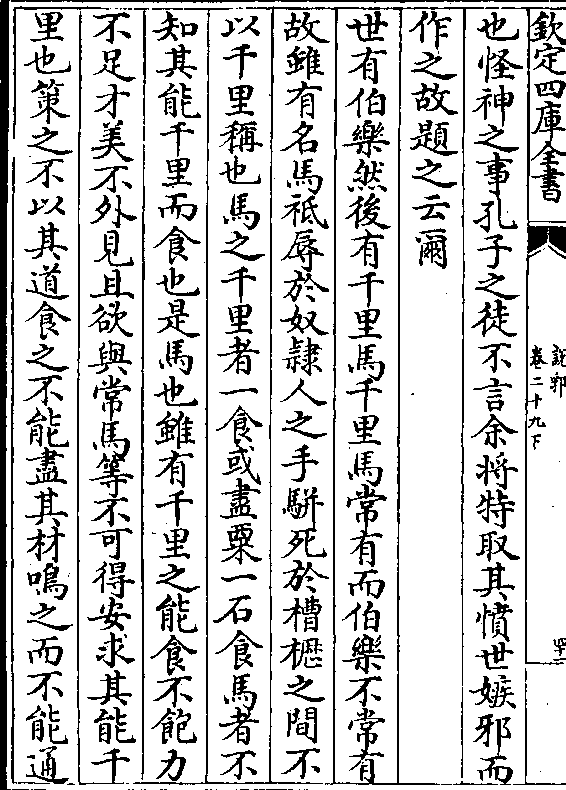 欽定四庫全書
說郛
卷二十九下
也怪神之事孔子之徒不言余將特取其憤世嫉邪而
作之故題之云爾
世有伯樂然後有千里馬千里馬常有而伯樂不常有
故雖有名馬祗辱於奴隷人之手駢死於槽櫪之間不
以千里稱也馬之千里者一食或盡粟一石食馬者不
知其能千里而食也是馬也雖有千里之能食不飽力
不足才美不外見且欲與常馬等不可得安求其能千
里也策之不以其道食之不能盡其材鳴之而不能通